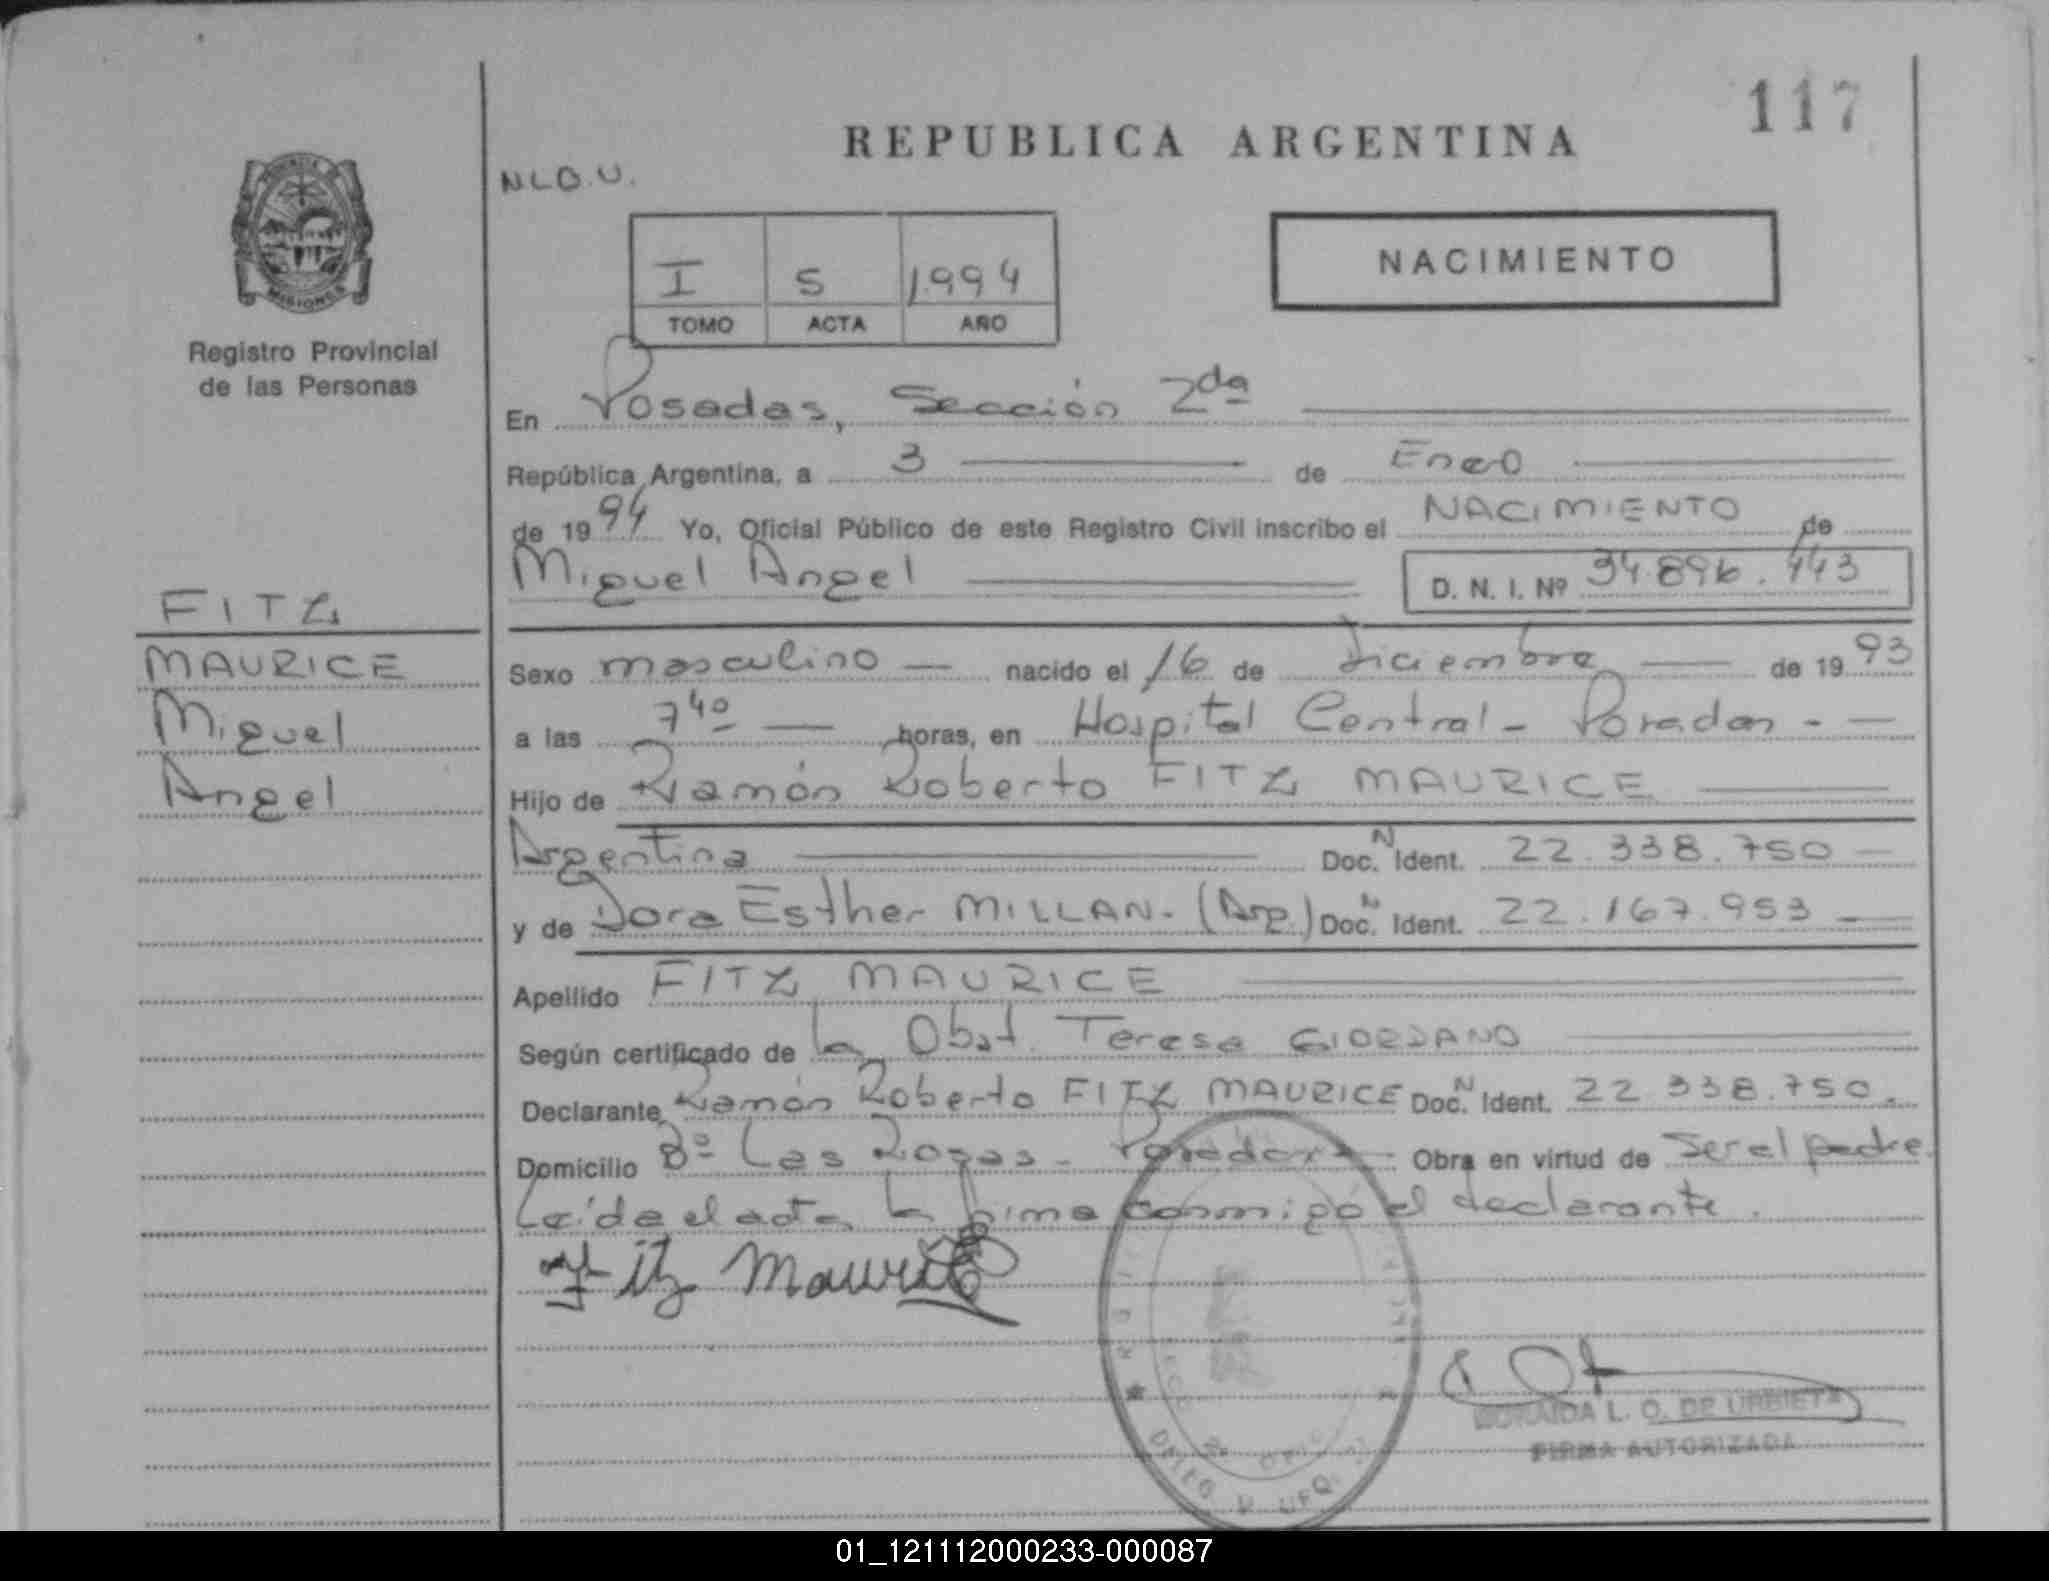 117
REPUBLICA ARGENTINA
N L O. U.
MISIONES
Registro Provincial
de las Personas
I 5 1994
TOMO ACTA AÑO
NACIMIENTO
En Posadas, Sección 2da
República Argentina, a 3 de Enero
de 1994 Yo, Oficial Público de este Registro Civil inscribo el NACIMIENTO de
Miguel Angel D. N. I. Nº 34.896.443
FITZ
MAURICE
Miguel
Angel
Sexo masculino nacido el 16 de diciembre de 1993
a las 7 40 horas, en Hospital Central - Posadas -
Hijo de Ramón Roberto FITZ MAURICE
Argentina Doc. N Ident. 22.338.750
y de Dora Esther MILLAN. (Arg.) Doc. N Ident. 22.167.953
Apellido FITZ MAURICE
Según certificado de la Obst. Teresa GIORDANO
Declarante Ramón Roberto FITZ MAURICE Doc. N Ident. 22 338.750.
Domicilio Bº Las Rosas - Posadas - Obra en virtud de ser el padre.
Leída el acta la firma conmigo el declarante.
Fitz Maurice
L. O. DE URBIETA
FIRMA AUTORIZADA
01_121112000233-000087